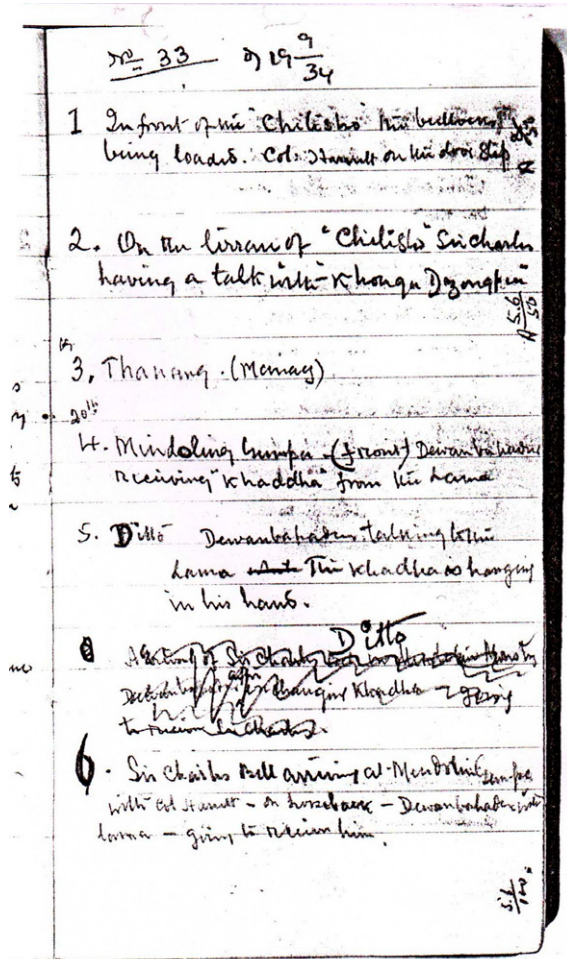 No. 33 of 19 9/34
1 In front of the "Chilisho" the
being loaded. Col. Harnett on the door step
2. On the of "Chilisho" Sir Charles
having a talk with Khongu Dzongpen
A 5.6/50
19
3. Thanang. (Moniay)
20th
4. Mindoling Gumpa. (front) Dewanbahadur
receiving "Khaddha" from the Lama
5. Ditto Dewanbahadur talking to the
Lama The Khadha is hanging
in his hand.
Ditto
of Sir Charles
after changing Khadha going
to receive Sir Charles.
6. Sir Charles Bell arriving at Mendoling Gumpa
with Col Harnett - on horseback - Dewanbahadur with
Lama - going to receive him.
5.6/100